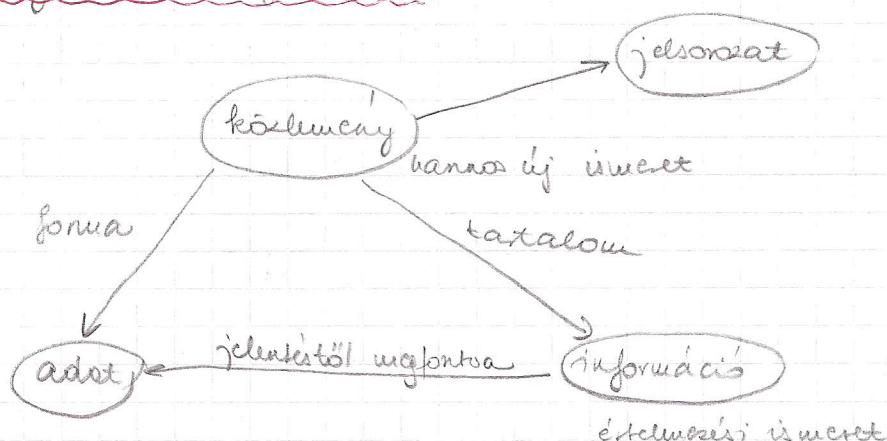 jelsorozat
közlemény
hasznos új ismeret
forma
tartalom
jelentéstől megfosztva
adat
információ
értelmezési ismeret